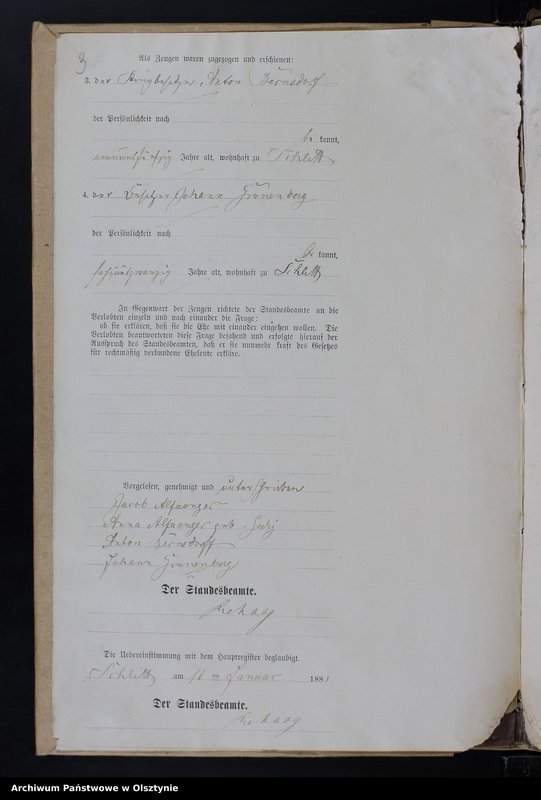 3
Als Zeugen waren zugezogen und erschienen:
3. der Krugbesitzer Anton Bernsdorff
der Persönlichkeit nach
be kannt,
Jahre alt, wohnhaft zu Schlitt
4. der Besitzer Johann Grünenberg
der Persönlichkeit nach
be kannt,
sechsundzwanzig Jahre alt, wohnhaft zu Schlitt
In Gegenwart der Zeugen richtete der Standesbeamte an die
Verlobten einzeln und nach einander die Frage:
ob sie erklären, daß sie die Ehe mit einander eingehen wollen. Die
Verlobten beantworteten diese Frage bejahend und erfolgte hierauf der
Ausspruch des Standesbeamten, daß er sie nunmehr kraft des Gesetzes
für rechtmäßig verbundene Eheleute erkläre.
Vorgelesen, genehmigt und unterschrieben
Jacob Alfaenger
Anna Alfaenger geb.
Anton Bernsdorff
Johann Grünenberg
Der Standesbeamte.
Rehaag
Die Uebereinstimmung mit dem Hauptregister beglaubigt.
Schlitt am 10 ten Januar 1881
Der Standesbeamte.
Rehaag
Archiwum Państwowe w Olsztynie